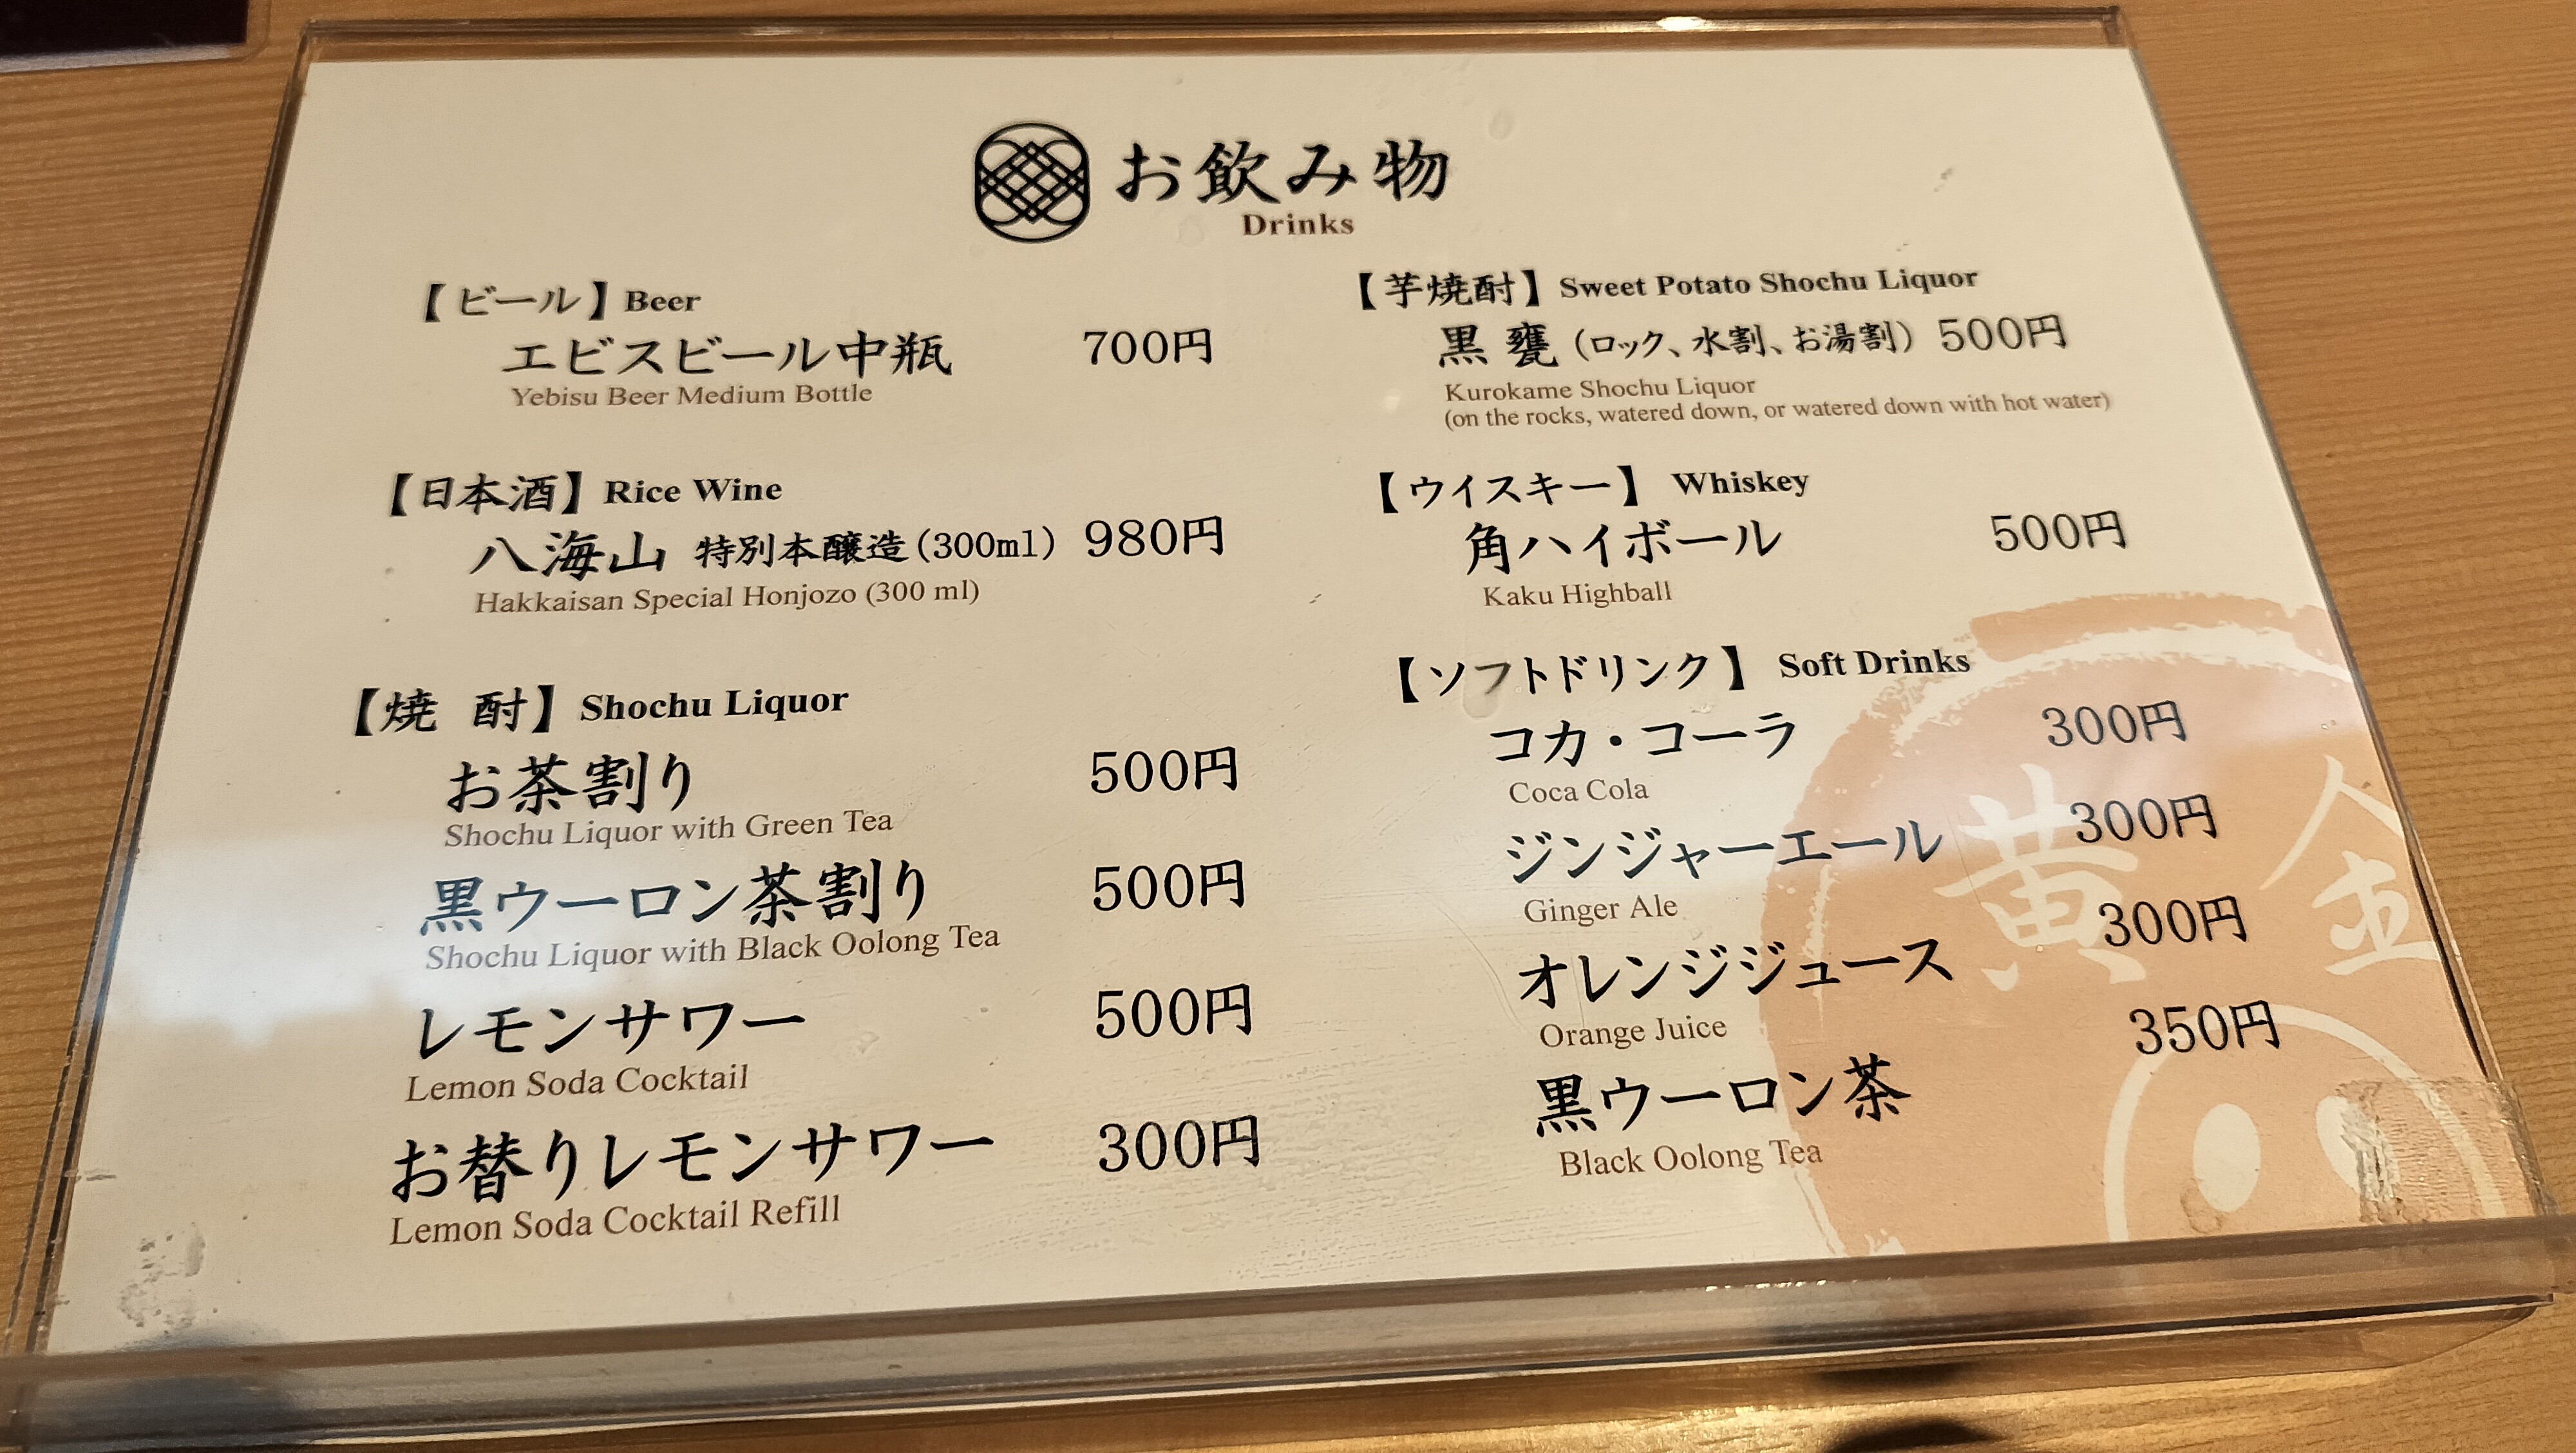 お飲み物
Drinks
【ビール】Beer
エビスビール中瓶 700円
Yebisu Beer Medium Bottle
【日本酒】Rice Wine
八海山 特別本醸造(300ml) 980円
Hakkaisan Special Honjozo (300 ml)
【焼 酎】Shochu Liquor
お茶割り 500円
Shochu Liquor with Green Tea
黒ウーロン茶割り 500円
Shochu Liquor with Black Oolong Tea
レモンサワー 500円
Lemon Soda Cocktail
お替りレモンサワー 300円
Lemon Soda Cocktail Refill
【芋焼酎】Sweet Potato Shochu Liquor
黒甕(ロック、水割、お湯割) 500円
Kurokame Shochu Liquor
(on the rocks, watered down, or watered down with hot water)
【ウイスキー】 Whiskey
角ハイボール 500円
Kaku Highball
【ソフトドリンク】 Soft Drinks
コカ・コーラ 300円
Coca Cola
ジンジャーエール 300円
Ginger Ale
オレンジジュース 300円
Orange Juice
黒ウーロン茶 350円
Black Oolong Tea
黄金